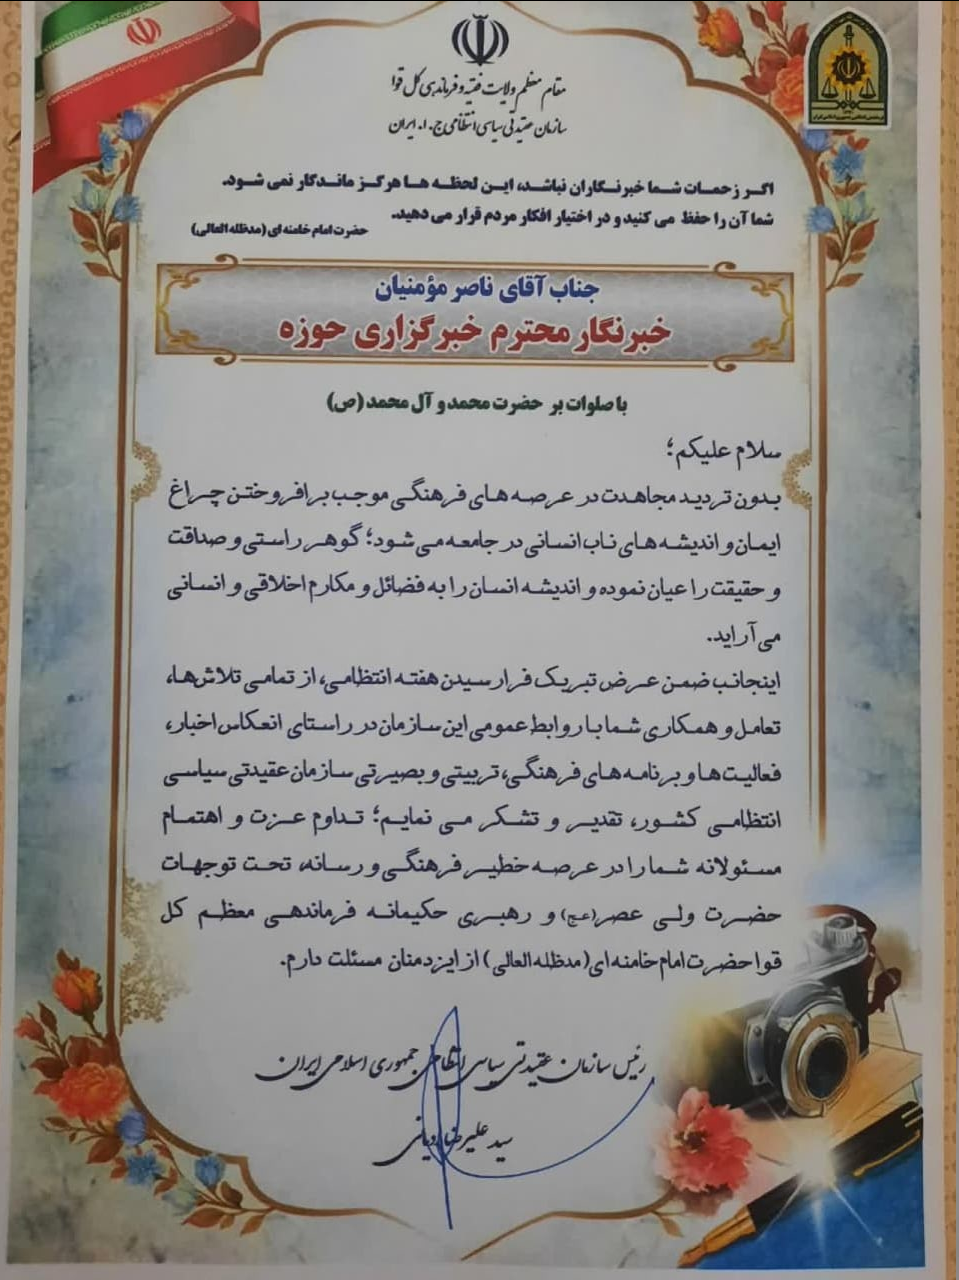 مقام معظم ولایت فقیه و فرماندهی کل قوا
سازمان عقیدتی سیاسی انتظامی ج.ا.ایران
اگر زحمات شما خبرنگاران نباشد، این لحظه ها هرگز ماندگار نمی شود.
شما آن را حفظ می کنید و در اختیار افکار مردم قرار می دهید.
حضرت امام خامنه ای (مدظله العالی)
جناب آقای ناصر مؤمنیان
خبرنگار محترم خبرگزاری حوزه
با صلوات بر حضرت محمد و آل محمد (ص)
سلام علیکم؛
بدون تردید مجاهدت در عرصه های فرهنگی موجب برافروختن چراغ
ایمان و اندیشه های ناب انسانی در جامعه می شود؛ گوهر راستی و صداقت
و حقیقت را عیان نموده و اندیشه انسان را به فضائل و مکارم اخلاقی و انسانی
می آراید.
اینجانب ضمن عرض تبریک فرا رسیدن هفته انتظامی، از تمامی تلاش‌ها،
تعامل و همکاری شما با روابط عمومی این سازمان در راستای انعکاس اخبار،
فعالیت ها و برنامه های فرهنگی، تربیتی و بصیرتی سازمان عقیدتی سیاسی
انتظامی کشور، تقدیر و تشکر می نمایم؛ تداوم عزت و اهتمام
مسئولانه شما را در عرصه خطیر فرهنگی و رسانه، تحت توجهات
حضرت ولی عصر(عج) و رهبری حکیمانه فرماندهی معظم کل
قوا حضرت امام خامنه ای(مدظله العالی) از ایزد منان مسئلت دارم.
رئیس سازمان عقیدتی سیاسی انتظامی جمهوری اسلامی ایران
سید علیرضا ادیانی